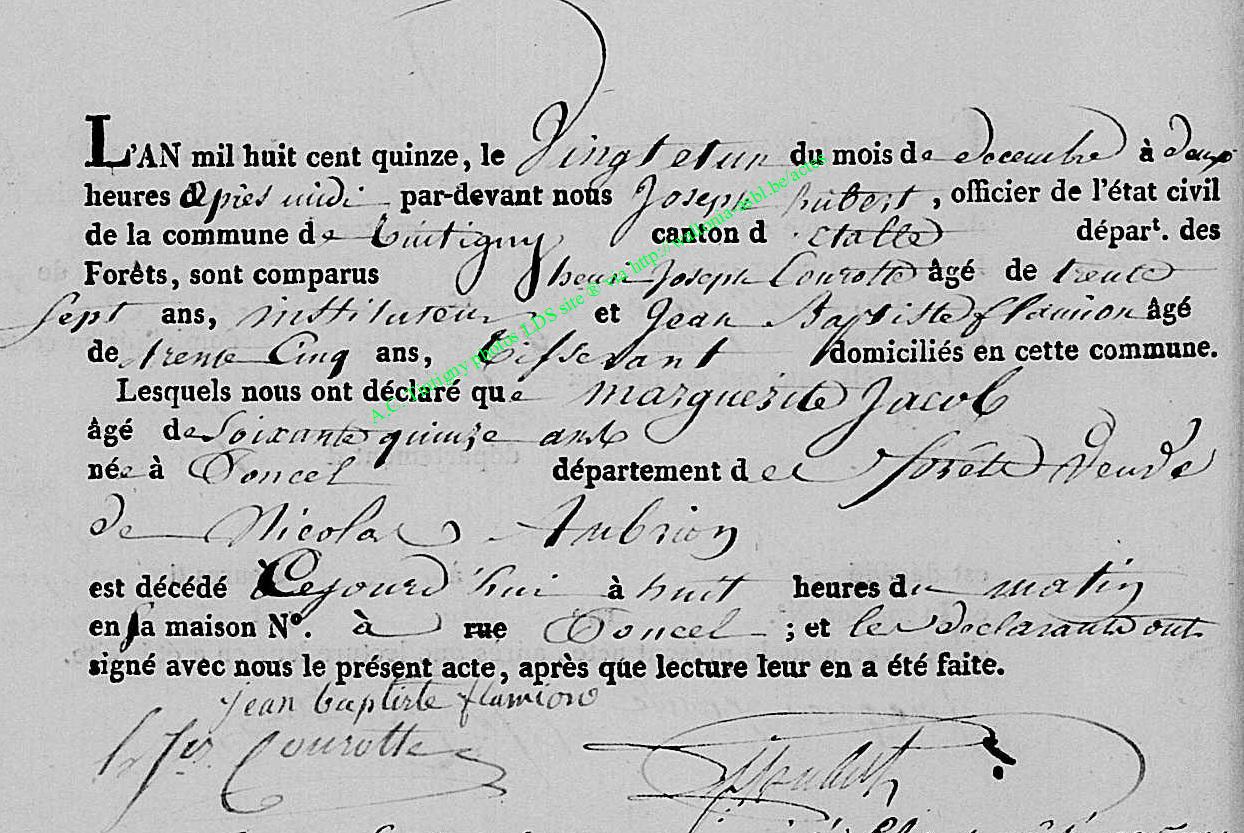 L'AN mil huit cent quinze, le Vingt et un du mois de decembre à deux
heures après midi par-devant nous Joseph hubert, officier de l'état civil
de la commune de tintigny canton d'étalle dépar<sup>t</sup>. des
Forêts, sont comparus henri Joseph Courotte âgé de trente
sept ans, instituteur et Jean Baptiste flamion âgé
de trente Cinq ans, tisserant domiciliés en cette commune.
Lesquels nous ont déclaré que marguerite Jacob
âgé de soixante quinze ans
née à Poncel département des forêts veuve
de Nicolas Aubrion
est décédé Cejourd'hui à huit heures du matin
en sa maison N°. à rue Poncel ; et les declarants ont
signé avec nous le présent acte, après que lecture leur en a été faite.
jean baptiste flamion
h. Js. Courotte
A.C. Tintigny photos LDS site ® via http://wallonia-asbl.be/actes